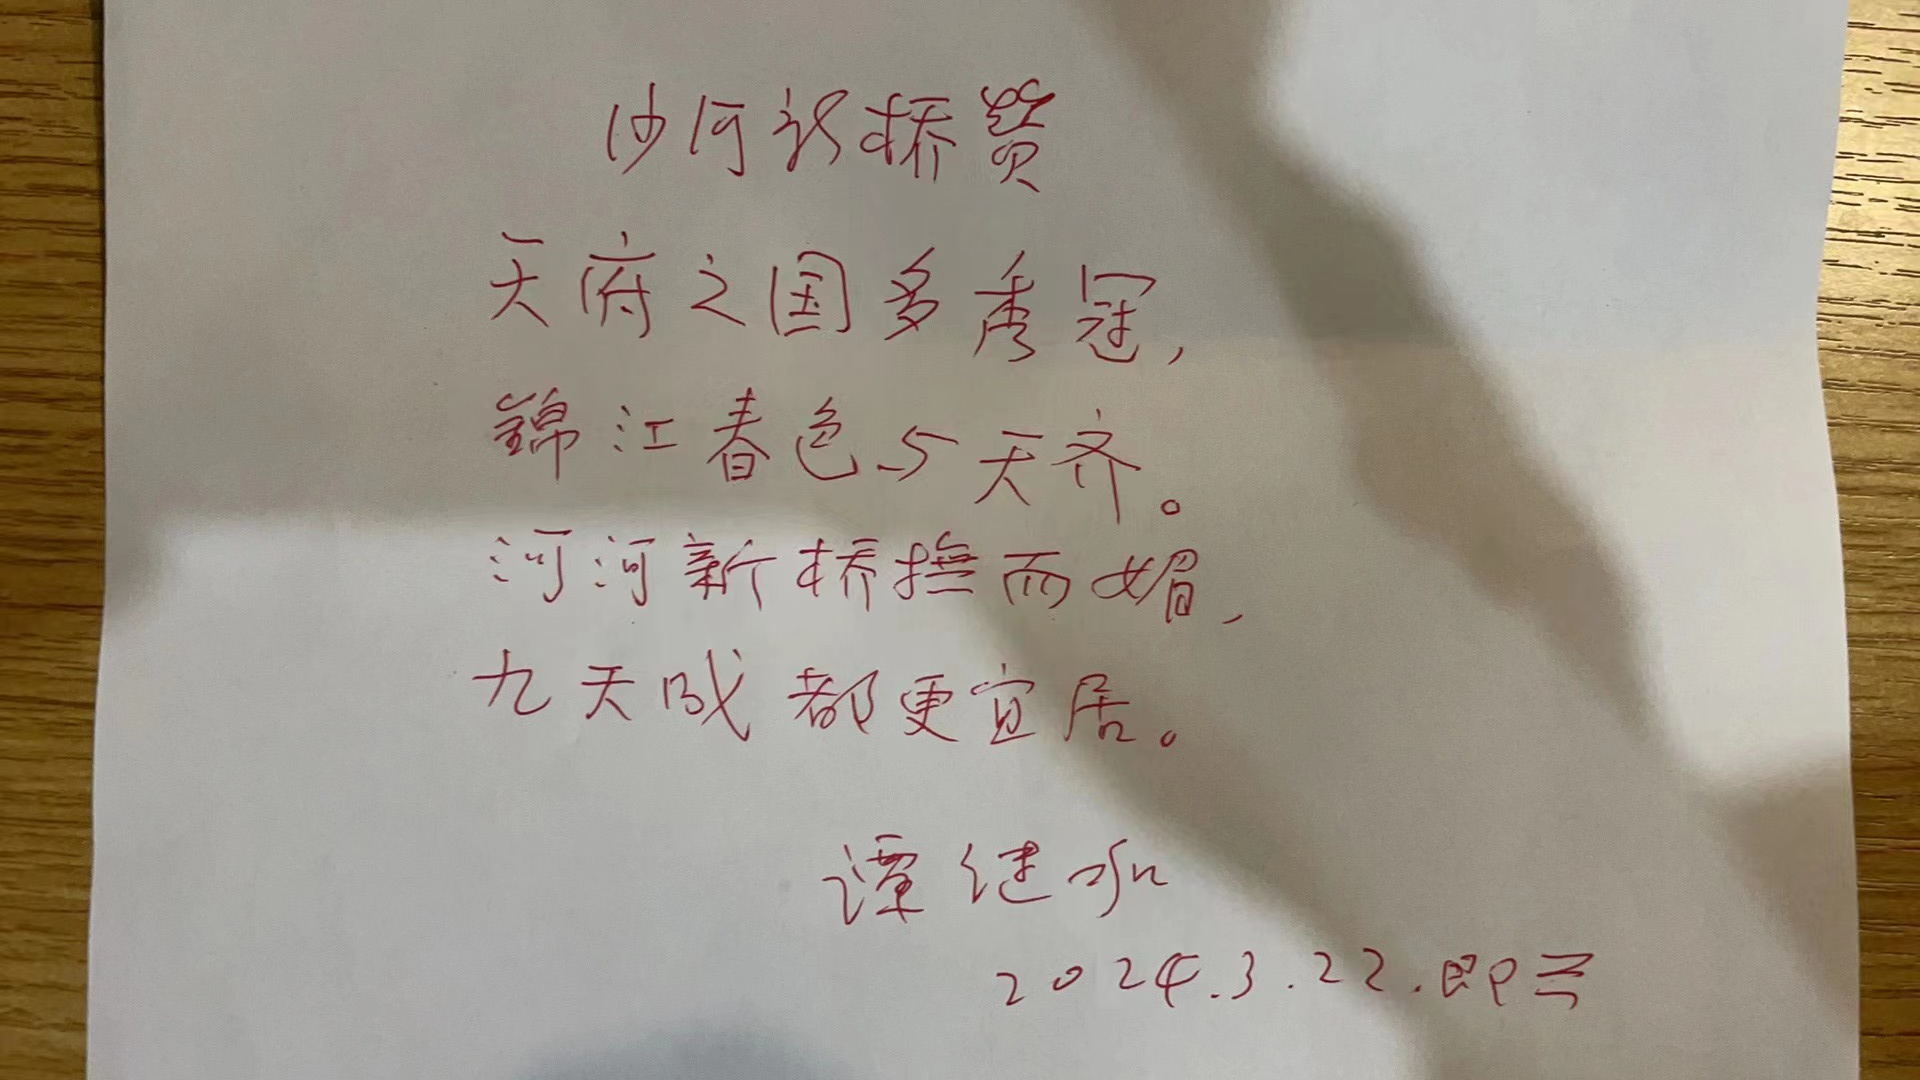 沙河新桥赞
天府之国多秀冠，
锦江春色与天齐。
河河新桥抚而媚，
九天成都更宜居。
谭继承
2024.3.22.即兴